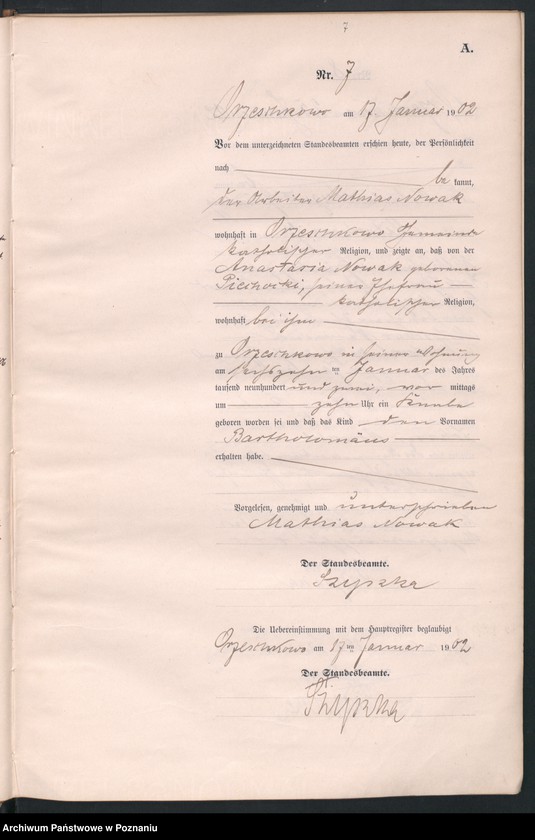 7
A.
Nr. 7
Orzeschkowo am 17. Januar 1902
Vor dem unterzeichneten Standesbeamten erschien heute, der Persönlichkeit
nach
be kannt,
der Arbeiter Mathias Nowak
wohnhaft in Orzeschkowo Gemeinde
katholischer Religion, und zeigte an, daß von der
Anastasia Nowak geborenen
seiner Ehefrau
katholischer Religion,
wohnhaft bei ihm
zu Orzeschkowo in seiner Wohnung
am sechszehn ten Januar des Jahres
tausend neunhundert und zwei, vor mittags
um zehn Uhr ein Knabe
geboren worden sei und daß das Kind den Vornamen
Bartholomäus
erhalten habe.
Vorgelesen, genehmigt und unterschrieben
Mathias Nowak
Der Standesbeamte.
Die Uebereinstimmung mit dem Hauptregister beglaubigt
Orzeschkowo am 17ten Januar 1902
Der Standesbeamte.
Archiwum Państwowe w Poznaniu